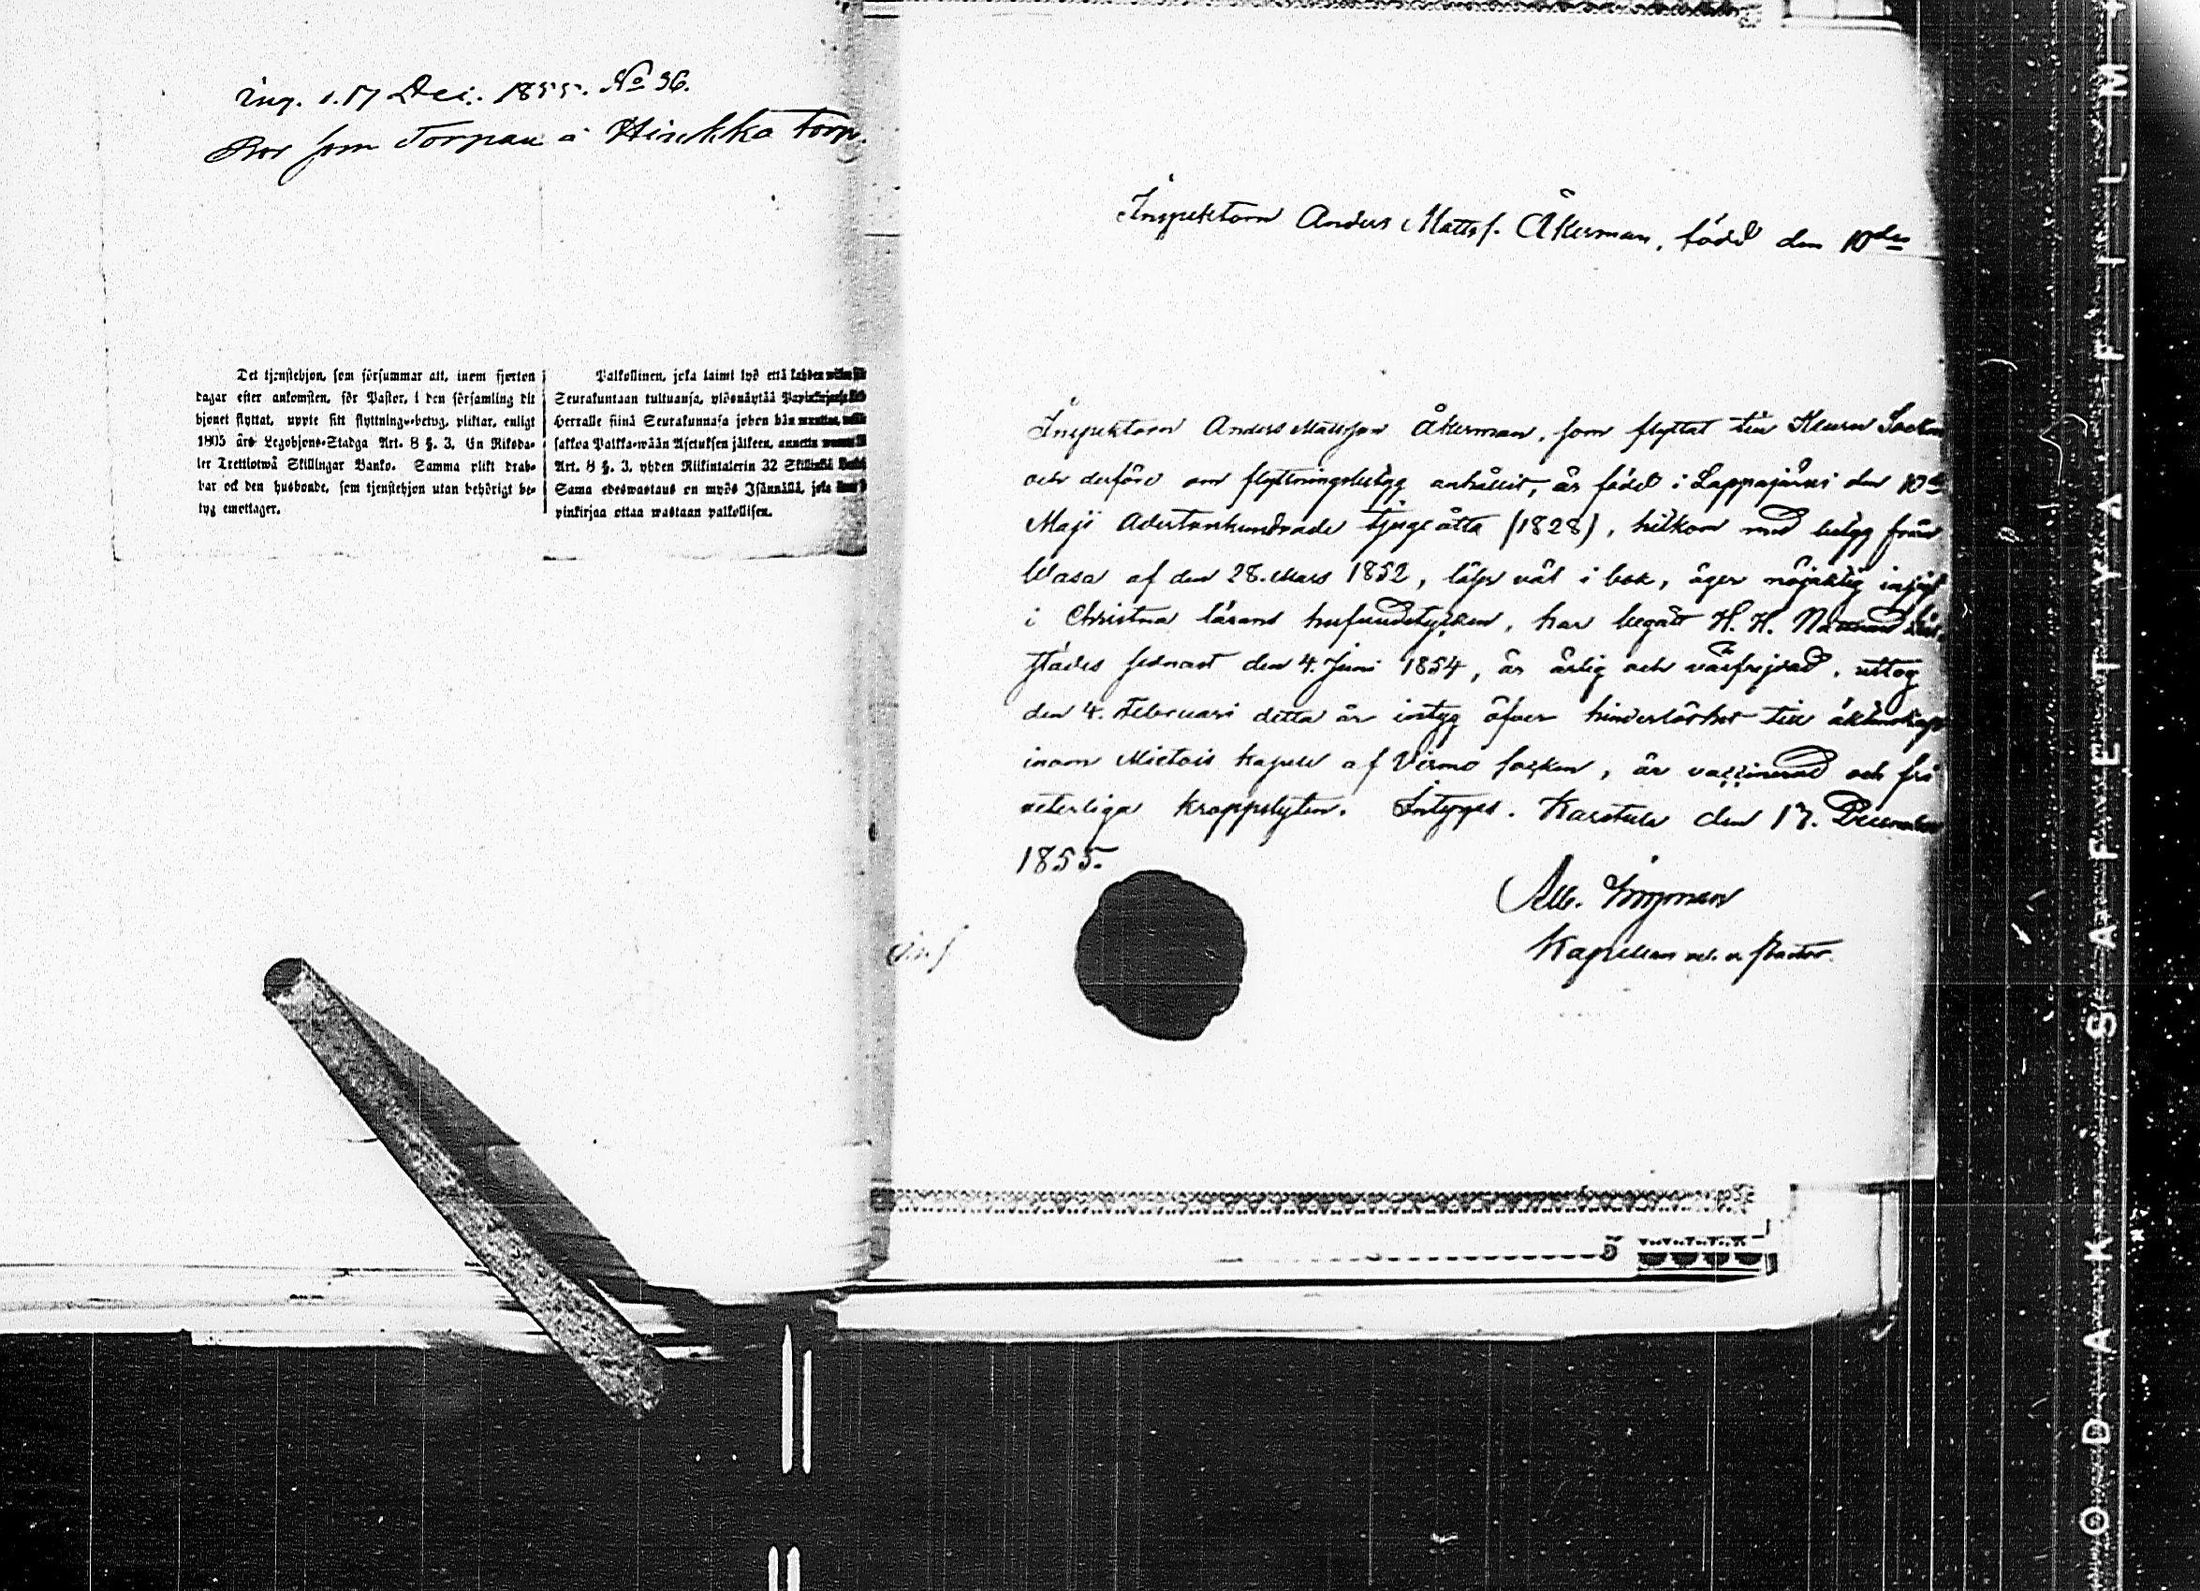 ing. d. 17 Dec. 1855. No 36.
Bor som Torpare å Hirckko torp.
Det tjenstehjon, som försummar att, inom fjorton
dagar efter ankomsten, för Pastor, i den församling dit
hjonet flyttat, uppte sitt flyttnings-betyg, pliktar, enligt
1805 års Legohjons-Stadga Art. 8 §. 3. En Riksda-
ler Trettiotwå Skillingar Banko. Samma plikt drab-
bar ock den husbonde, som tjenstehjon utan behörigt be-
tyg emottager.
Palkollinen, joka laimi lyö että kahden
Seurakuntaan tultuansa, ylösnäytää
Herralle siinä Seurakunnasa johon hän
sakkoa Palkka-wään Asetuksen jälkeen,
Art. 8 §. 3. yhden Riikintalerin 32 Skillinkiä
Sama edeswastaus on myös Isännällä, joka
pinkirjaa ottaa wastaan palkollisen.
Inspektorn Anders Mattsf. Åkerman, född den 10de
Inspektorn Anders Mattsson Åkerman, som flyttat till Keuru Socken
och derföre om flyttningsbetyg anhållit, är född i Lappajärvi den 10de
Maji Adertonhundrade tjugeåtta (1828), hitkom med betyg från
Wasa af den 28. Mars 1852, läser väl i bok, äger nöjaktig insigt
i Christna lärans hufvudstycken, har begått H. H. Nattvard
städes sednast den 4. Juni 1854, är ärlig och välfrejdad, uttog
den 4. Februari detta år intyg öfver hinderlöshet till äktenskap
inom Mietois kapell af Virmo socken, är vaccinerad och fri
veterliga kroppslyten. Intygas. Karstula den 17. December
1855.
Kapellan
KODAK SAFETY FILM